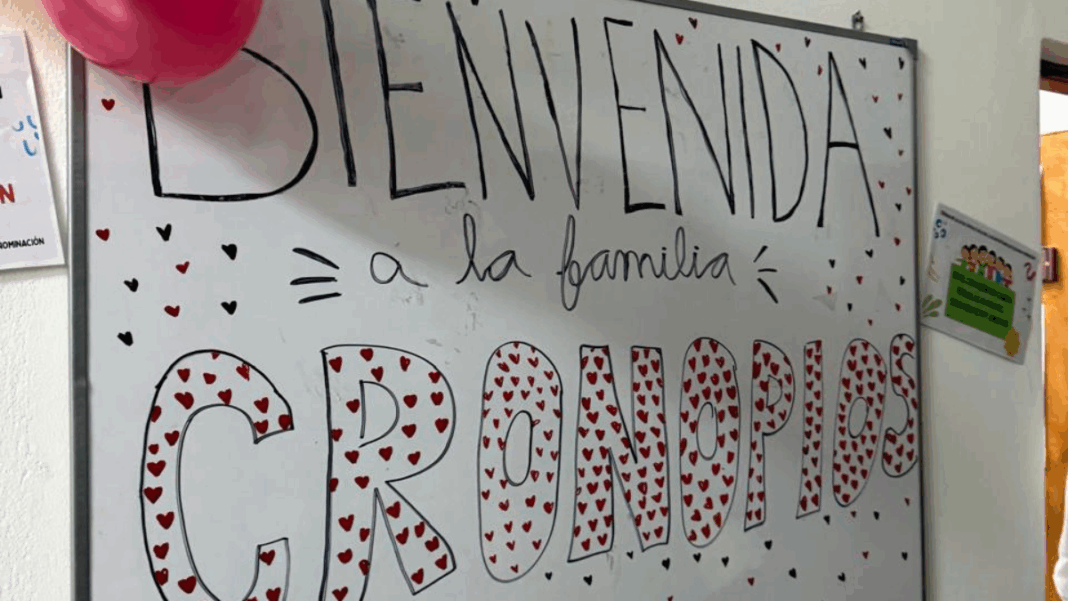 BIENVENIDA
a la familia
CRONOPIOS
N
OMINACIÓN